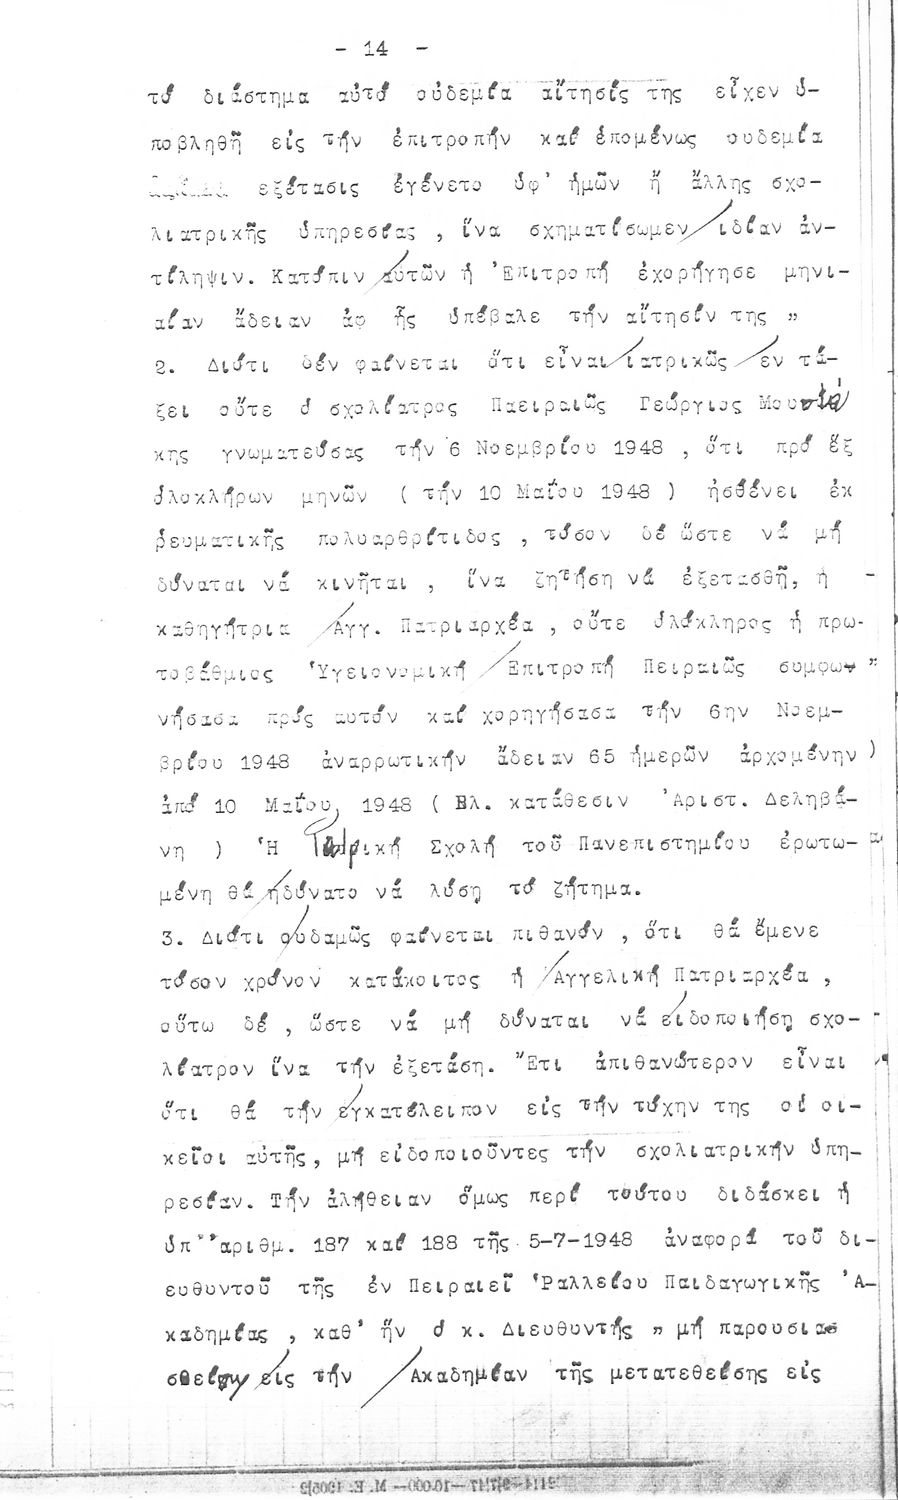 - 14 -
τό διάστημα αὐτό οὐδεμία αἴτησίς της εἶχεν ὑ-
ποβληθῆ εἰς τήν ἐπιτροπήν καί ἑπομένως ουδεμία
εξέτασις ἐγένετο ὑφ' ἡμῶν ἤ ἄλλης σχο-
λιατρικῆς ὑπηρεσίας , ἵνα σχηματίσωμεν ιδίαν ἀν-
τίληψιν. Κατόπιν αυτῶν ἡ 'Επιτροπή ἐχορήγησε μηνι-
αίαν ἄδειαν ἀφ ἧς ὑπέβαλε τήν αἴτησίν της "
2. Διότι δέν φαίνεται ὅτι εἶναι ιατρικῶς εν τά-
ξει οὔτε ὁ σχολίατρος Παειραιῶς Γεώργιος Μουσιά
κης γνωματεύσας τήν 6 Νοεμβρίου 1948 , ὅτι πρό ἕξ
ὁλοκλήρων μηνῶν ( τήν 10 Μαΐου 1948 ) ἠσθένει ἐκ
ῥευματικῆς πολυαρθρίτιδος , τόσον δέ ὥστε νά μή
δύναται νά κινῆται , ἵνα ζητήση νά ἐξετασθῆ, ἡ -
καθηγήτρια Αγγ. Πατριαρχέα , οὔτε ὁλόκληρος ἡ πρω-
τοβάθμιος 'Υγειονομική Επιτροπή Πειραιῶς συμφω- "
νήσασα πρός αυτόν καί χορηγήσασα τήν 6ην Νοεμ-
βρίου 1948 ἀναρρωτικήν ἄδειαν 65 ἡμερῶν ἀρχομένην )
ἀπό 10 Μαΐου 1948 ( Βλ. κατάθεσιν 'Αριστ. Δεληβά-
νη ) 'Η Ιατρική Σχολή τοῦ Πανεπιστημίου ἐρωτω-
μένη θά ηδύνατο νά λύση τό ζήτημα.
3. Διότι ουδαμῶς φαίνεται πιθανόν , ὅτι θά ἔμενε
τόσον χρόνον κατάκοιτος ἡ Αγγελική Πατριαρχέα ,
οὕτω δέ , ὥστε νά μή δύναται νά ειδοποιήση σχο-
λίατρον ἵνα τήν ἐξετάση. "Ετι ἀπιθανώτερον εἶναι
ὅτι θά τήν εγκατέλειπον εἰς τήν τύχην της οἱ οι-
κεῖοι αὐτῆς, μή εἰδοποιοῦντες τήν σχολιατρικήν ὑπη-
ρεσίαν. Τήν ἀλήθειαν ὅμως περί τούτου διδάσκει ἡ
ὑπ''αριθμ. 187 καί 188 τῆς 5-7-1948 ἀναφορά τοῦ δι-
ευθυντοῦ τῆς ἐν Πειραιεῖ 'Ραλλείου Παιδαγωγικῆς 'Α-
καδημίας , καθ' ἥν ὁ κ. Διευθυντής " μή παρουσια
σθείσης εἰς τήν Ακαδημίαν τῆς μετατεθείσης εἰς